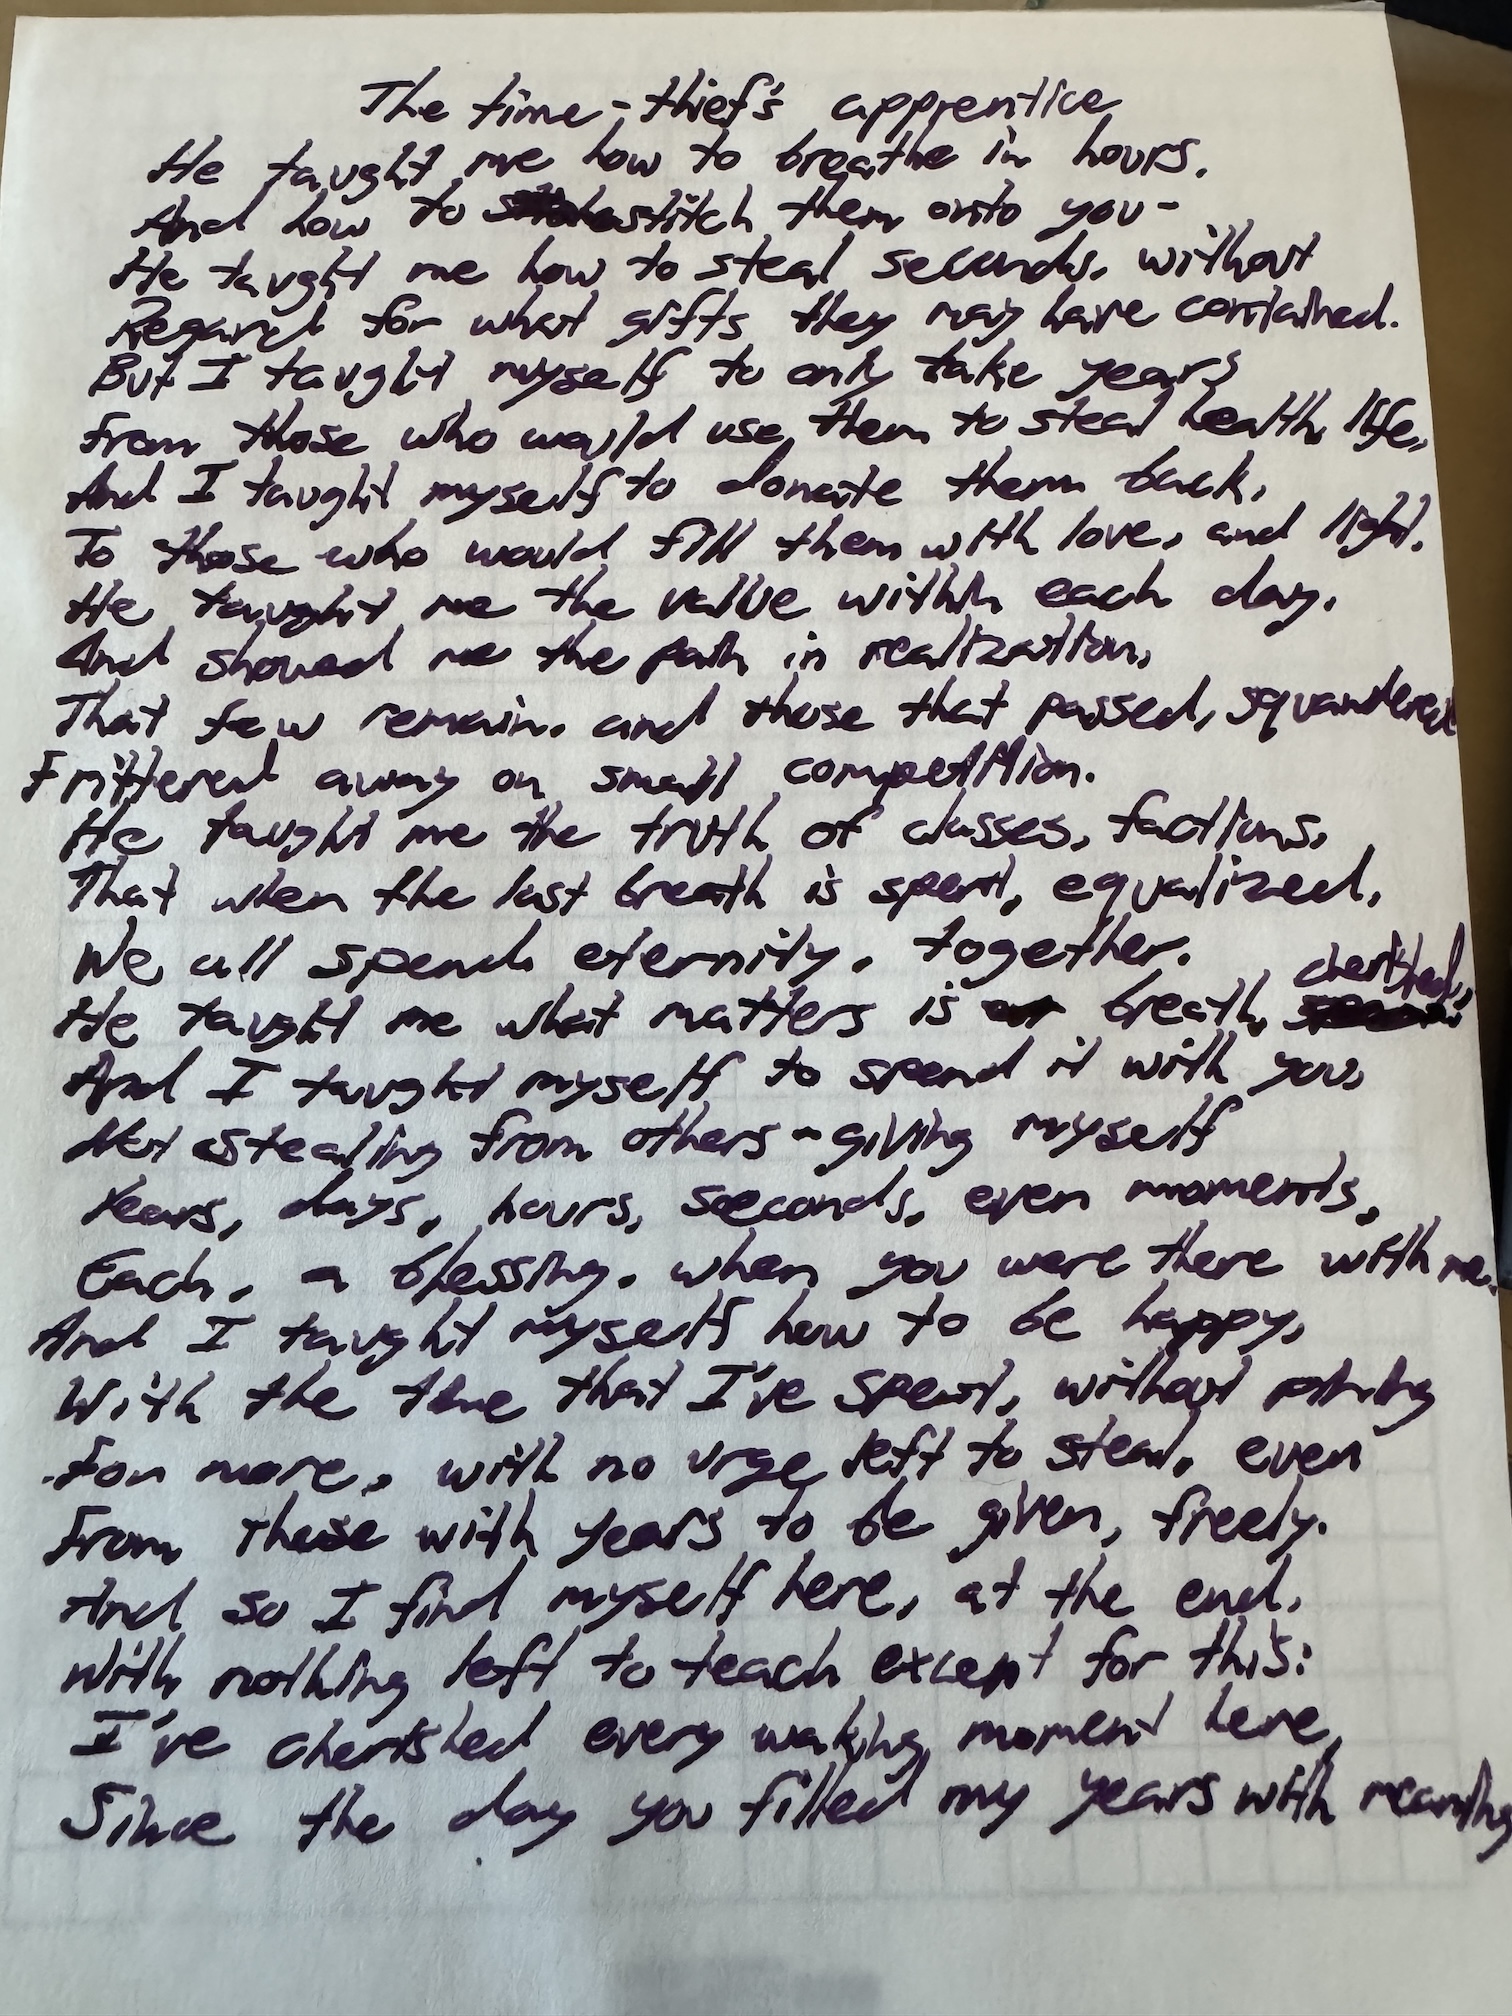 The time-thief's apprentice
He taught me how to breathe in hours,
And how to stitch them onto you-
He taught me how to steal seconds, without
Regard for what gifts they may have contained.
But I taught myself to only take years
From those who would use them to steal health, life,
And I taught myself to donate them back,
To those who would fill them with love, and light.
He taught me the value within each day,
And showed me the pain in realization,
That few remain, and those that passed, squandered
Frittered away on small competition.
He taught me the truth of classes, factions,
That when the last breath is spent, equalized,
We all spend eternity, together.
He taught me what matters is breath, cherished,
And I taught myself to spend it with you,
Not stealing from others - giving myself
Years, days, hours, seconds, even moments,
Each, a blessing, when you were there with me.
And I taught myself how to be happy,
With the time that I've spent, without pining
For more, with no urge left to steal, even
From those with years to be given, freely.
And so I find myself here, at the end,
With nothing left to teach except for this:
I've cherished every waking moment here,
Since the day you filled my years with meaning